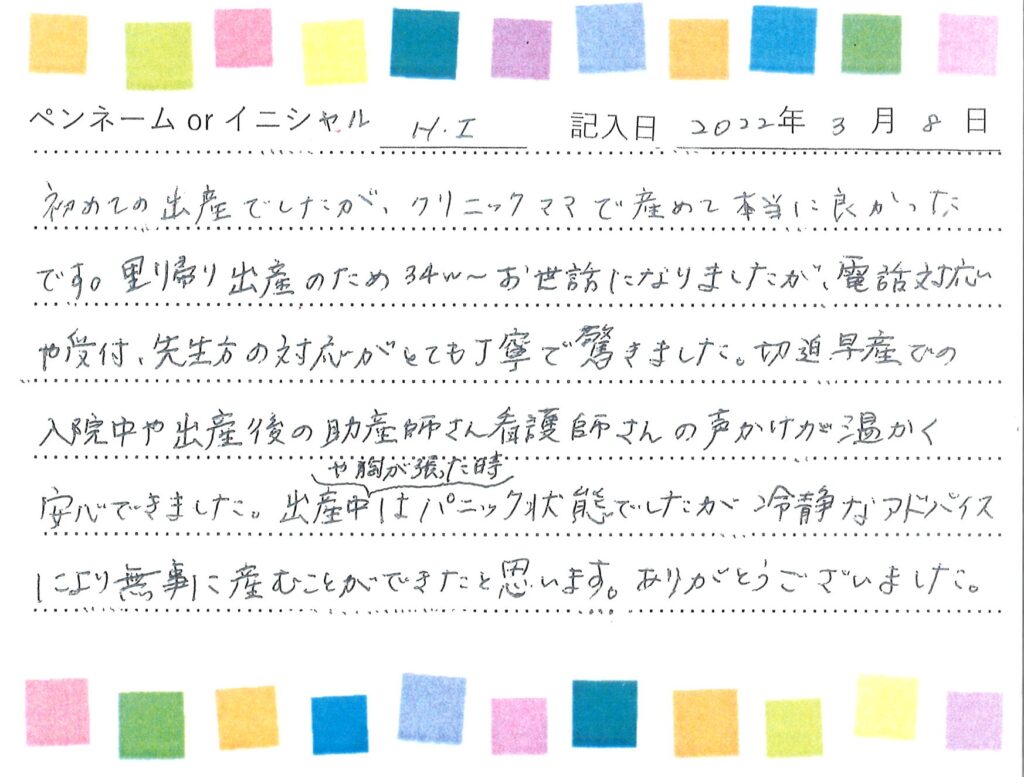 ペンネーム or イニシャル H.I 記入日 2022年 3月 8日
初めての出産でしたが、クリニックママで産めて本当に良かった
です。里り帰り出産のため34w〜お世話になりましたが、電話対応
や受付、先生方の対応がとても丁寧で驚きました。切迫早産での
入院中や出産後の助産師さん看護師さんの声かけが温かく
や胸が張った時
安心できました。出産中はパニック状態でしたが冷静なアドバイス
により無事に産むことができたと思います。ありがとうございました。